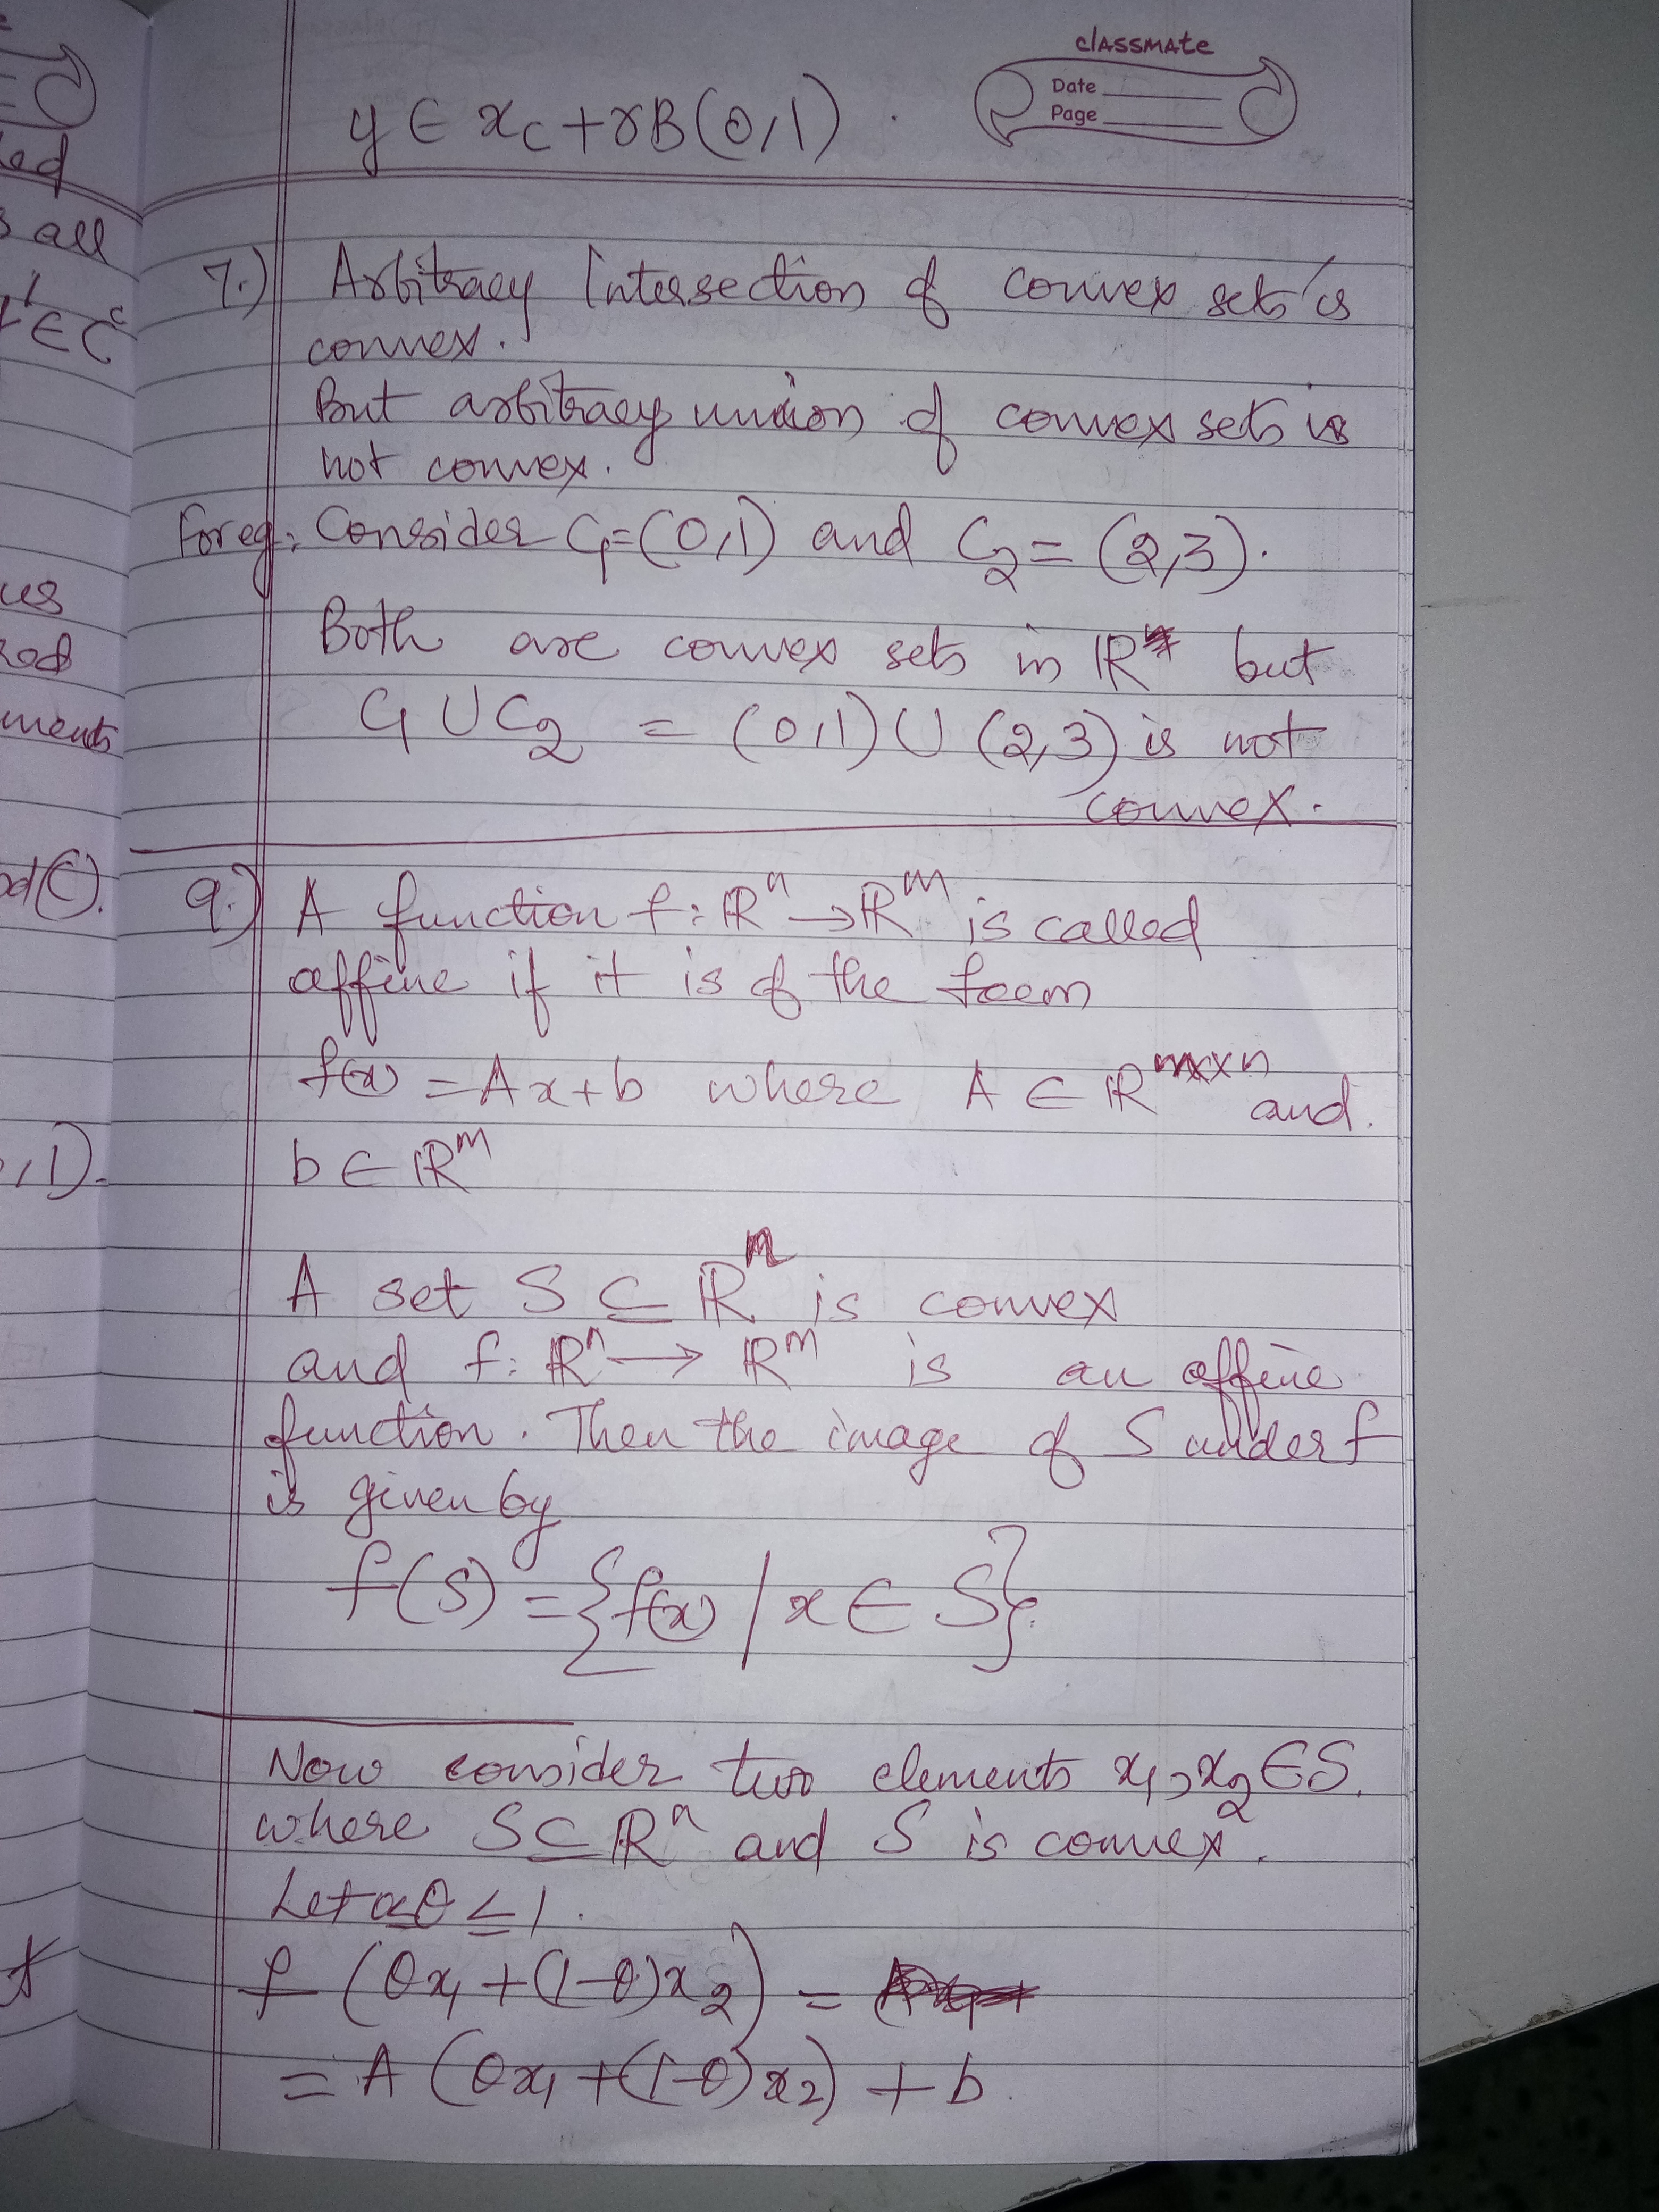 classmate
Date
Page
y ∈ x_c + rB(0,1).
7.) Arbitrary Intersection of convex sets is
convex.
But arbitrary union of convex sets is
not convex.
For eg: Consider C₁=(0,1) and C₂ = (2,3).
Both are convex sets in ℝ but
C₁ ∪ C₂ = (0,1) ∪ (2,3) is not
convex.
9.) A function f: ℝⁿ → ℝᵐ is called
affine if it is of the form
f(x) = Ax + b where A ∈ ℝ^{m×n} and.
b ∈ ℝᵐ
A set S ⊆ ℝⁿ is convex
and f: ℝⁿ → ℝᵐ is an affine
function. Then the image of S under f
is given by
f(S) = {f(x) / x ∈ S}.
Now consider two elements x₁, x₂ ∈ S.
where S ⊆ ℝⁿ and S is convex.
Let 0 ≤ θ ≤ 1.
f (θx₁ + (1-θ)x₂) =
= A (θx₁ + (1-θ)x₂) + b.
all
∈ Cᶜ
ments
,1).